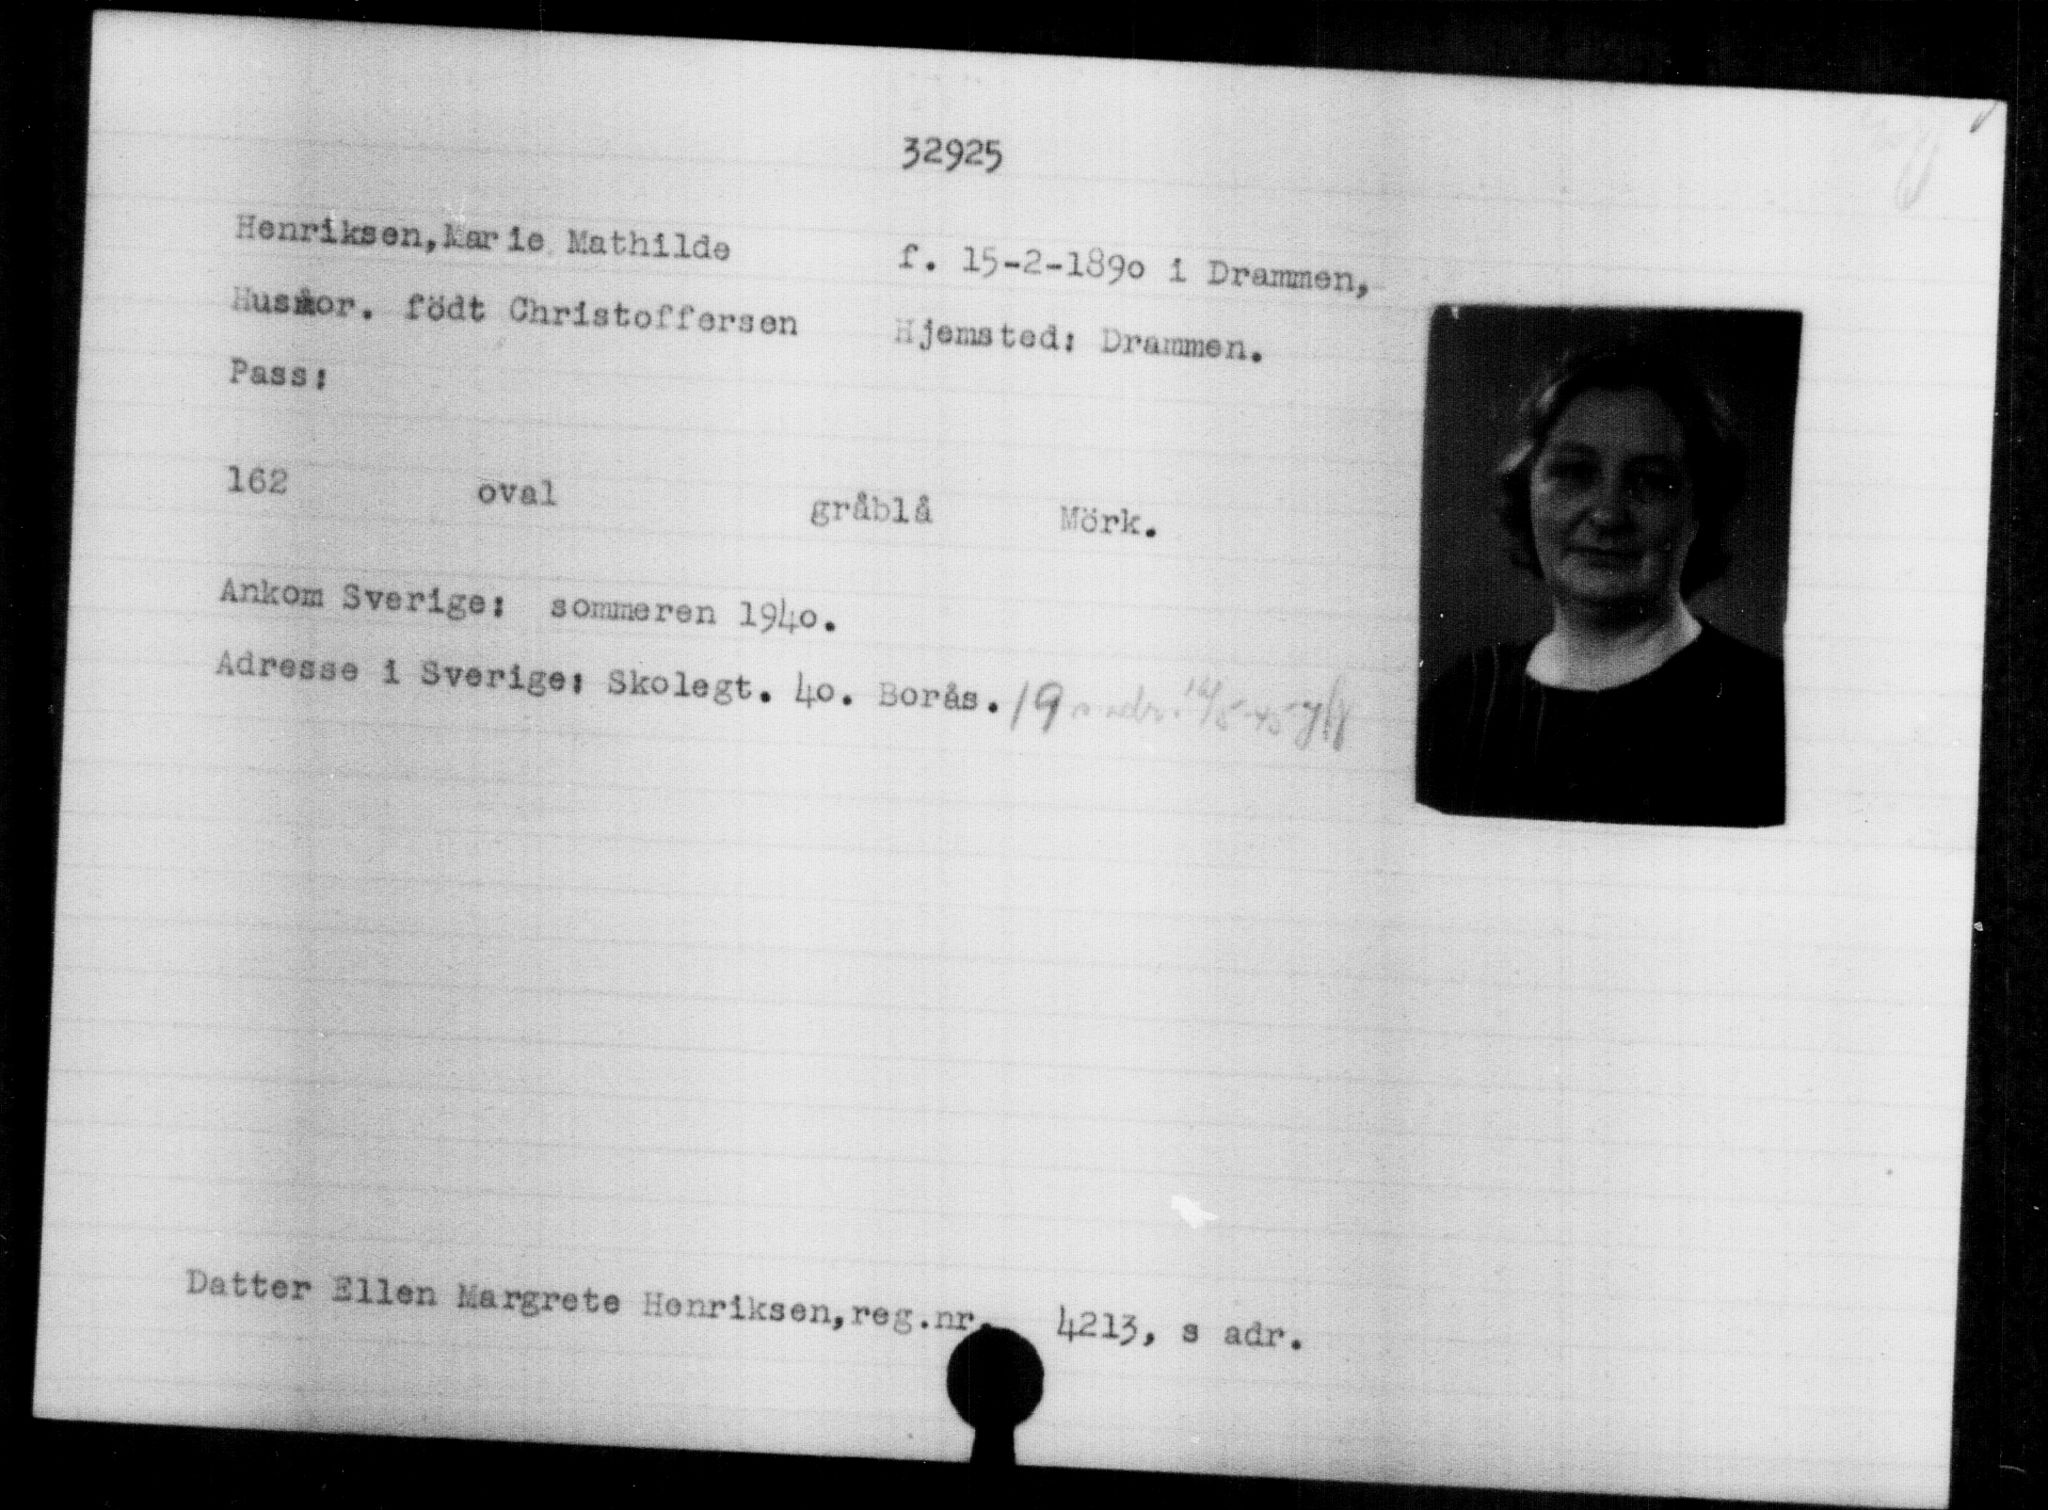 32925
Henriksen, Marie Mathilde f. 15-2-1890 i Drammen,
Husmor. födt Christoffersen Hjemsted: Drammen.
Pass:
162 oval gråblå Mörk.
Ankom Sverige: sommeren 1940.
Adresse i Sverige: Skolegt. 40. Borås. 19
Datter Ellen Margrete Henriksen, reg.nr. 4213, s adr.